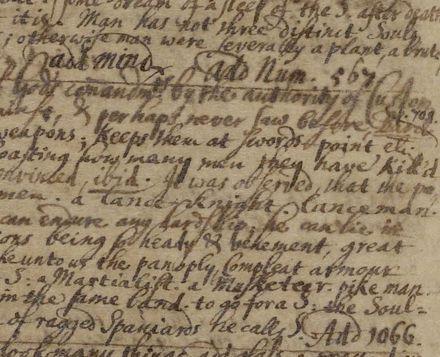 dream of a sleep of the S. after death
it is. Man has not three distinct Souls
; otherwise man were severally a plant, a brute
add mind Add Num. 567
Gods comandmt by the authority of Custom
& perhaps never saw before
v. 708.
weapons; keeps them at swords point etc.
boasting how many men they have kill'd
ibid. It was observed, that the pe
men. a lance-knight. lance man.
can endure any hardship; he can lie in
ions being so heady & vehement, great
like unto us the panoply, compleat armour
S: a Martialist. a Musketeer. pike man.
in the same land. to go for a S: the Soul-
of ragged Spaniards he calls S. Add 1066
look many things